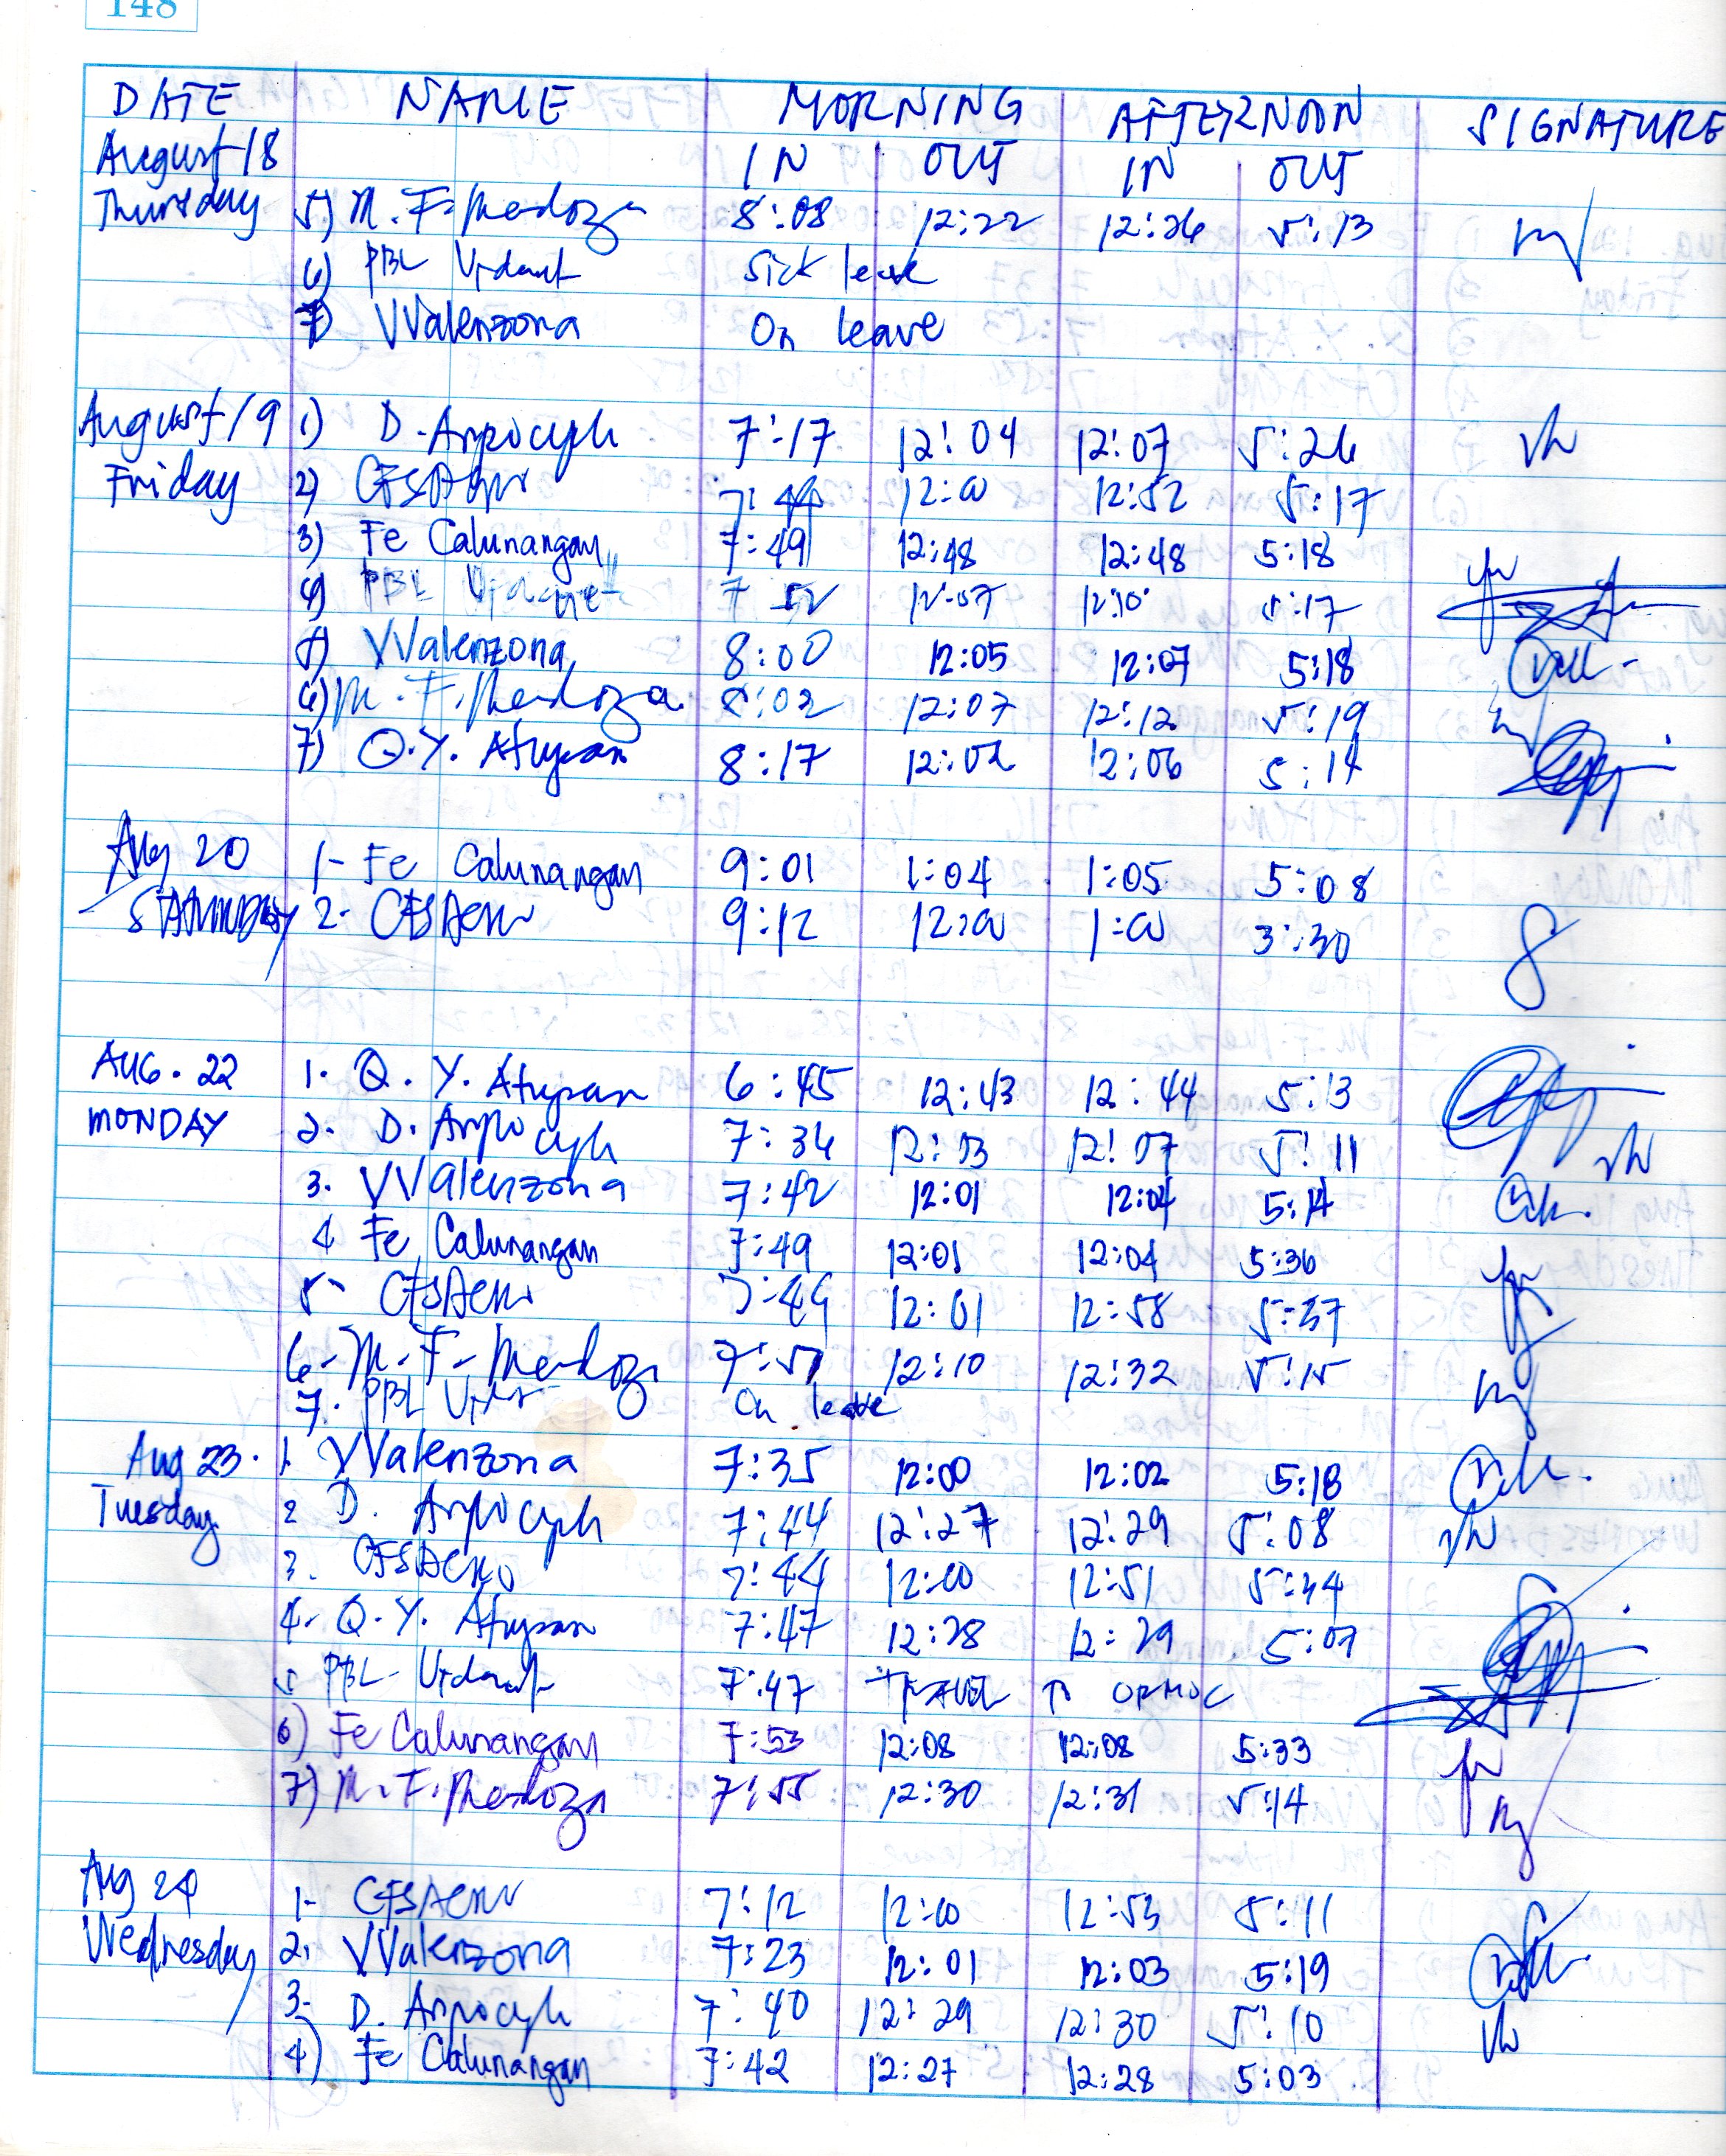 148
DATE NAME MORNING AFTERNOON SIGNATURE
August 18 IN OUT IN OUT
Thursday 5) M. F. Mendoza 8:08 12:22 12:26 5:13
6) PBL Sick leave
7) VValenzona On leave
August 19 1) D. 7:17 12:04 12:07 5:26
Friday 2) 12:00 12:52 5:17
3) Fe Calunangan 7:49 12:48 12:48 5:18
4) PBL 7 52 12:07 12:10 5:17
5) VValenzona 8:00 12:05 12:07 5:18
6) M. F. Mendoza 8:02 12:07 12:12 5:19
7) Q.Y. Atupan 8:17 12:02 12:06 5:14
Aug 20 1- Fe Calunangan 9:01 1:04 1:05 5:08
SATURDAY 2- 9:12 12:00 1:00 3:30
AUG. 22 1. Q. Y. Atupan 6:45 12:43 12:44 5:13
MONDAY 2. D. 7:36 12:03 12:07 5:11
3. VValenzona 7:42 12:01 12:04 5:14
4 Fe Calunangan 7:49 12:01 12:04 5:36
5- 7:49 12:01 12:58 5:37
6- M. F. Mendoza 7:51 12:10 12:32 5:15
7. PBL On leave
Aug 23. 1. VValenzona 7:35 12:00 12:02 5:18
Tuesday 2 D. 7:44 12:27 12:29 5:08
3. 7:44 12:00 12:51 5:34
4. Q.Y. Atupan 7:47 12:28 12:29 5:07
5 PBL 7:47 TRAVEL TO ORMOC
6) Fe Calunangan 7:53 12:08 12:08 5:33
7) M. F. Mendoza 7:55 12:30 12:31 5:14
Aug 24 1- 7:12 12:00 12:53 5:11
Wednesday 2. VValenzona 7:23 12:01 12:03 5:19
3- D. 7:40 12:29 12:30 5:10
4) Fe Calunangan 7:42 12:27 12:28 5:03